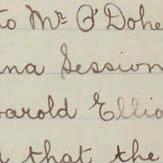 to Mr O'Dohe
na Session
arold Ellio
d that the